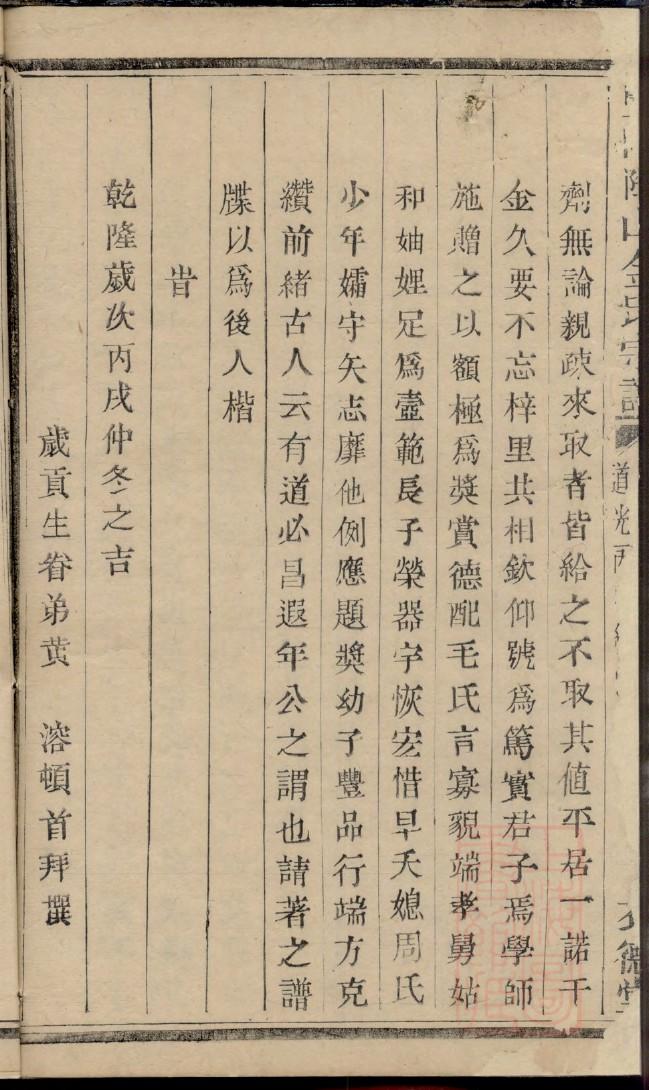 劑無論親疎來取者皆給之不取其值平居一諾千
金久要不忘梓里共相欽仰號爲篤實君子焉學師
施贈之以額極爲奬賞德配毛氏言寡貌端孝舅姑
和妯娌足爲壼範長子榮器宇恢宏惜早夭媳周氏
少年孀守矢志靡他例應題奬幼子豐品行端方克
纘前緒古人云有道必昌遐年公之謂也請著之譜
牒以爲後人楷
旹
乾隆歲次丙戌仲冬之吉
歲貢生眷弟黄 溶頓首拜撰
金氏宗譜
道光